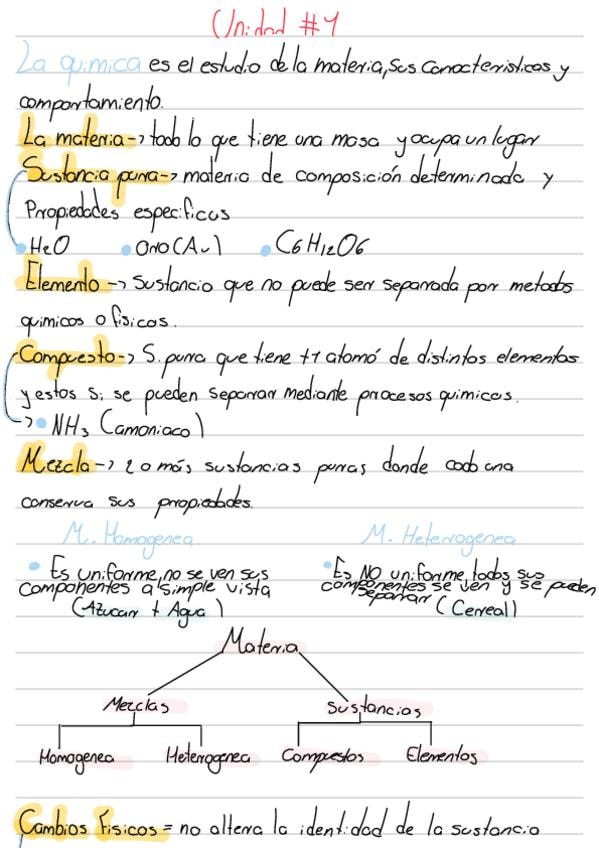 Unidad #1
La quimica es el estudio de la materia, sus caracteristicas y
comportamiento.
La materia -> todo lo que tiene una masa y ocupa un lugar
Sustancia pura -> materia de composición determinada y
Propiedades especificas
• H2O • Oro (Au) • C6H12O6
Elemento -> Sustancia que no puede ser separada por metodos
quimicos o fisicos.
Compuesto -> S. pura que tiene +1 atomó de distintos elementos
y estos si se pueden separar mediante procesos quimicos.
-> • NH3 (amoniaco)
Mezcla -> 2 o más sustancias puras donde cada una
conserva sus propiedades.
M. Homogenea M. Heterogenea
• Es uniforme, no se ven sus • Es NO uniforme, todos sus
componentes a simple vista componentes se ven y se pueden
separar (Cereal)
(Azucar + Agua)
Materia
Mezclas Sustancias
Homogenea Heterogenea Compuestos Elementos
Cambios Fisicos = no altera la identidad de la sustancia